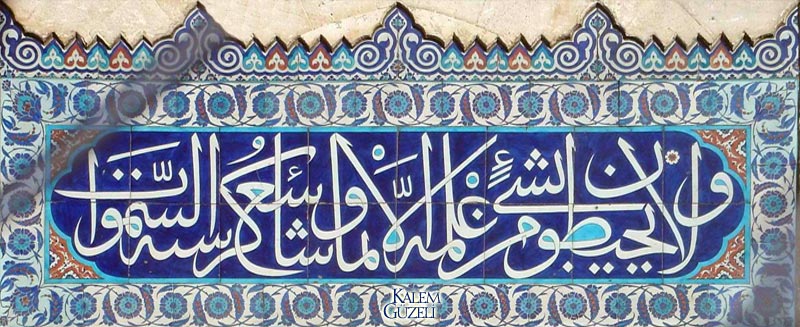 ولا يحيطون بشئ من علمه الا بما شاء وسع كرسيه السموات
KALEM
GÜZELİ